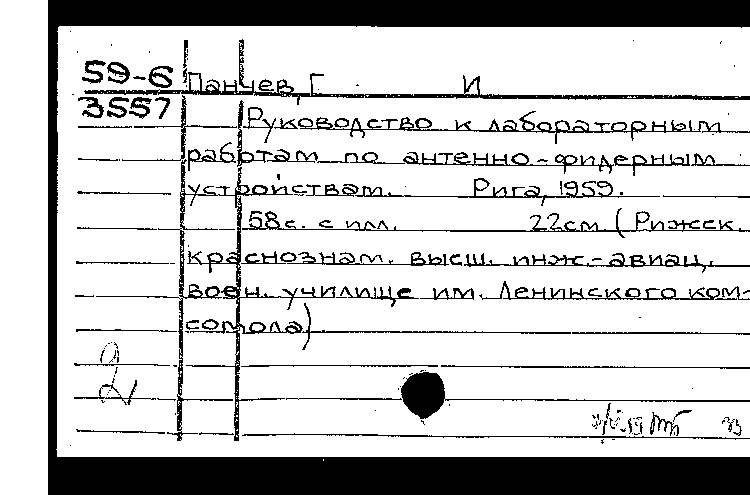 59-6 Панчев, Г И
3557
Руководство к лабораторным
работам по антенно-фидерным
устройствам. Рига, 1959.
58 с. с илл. 22 см (Рижск.
краснознам. высш. инж.-авиац.
воен. училище им. Ленинского ком-
сомола)
2